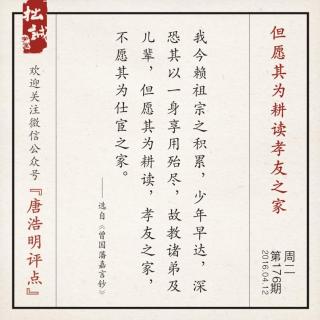 但愿其为耕读孝友之家
周二
第176期
2016.04.12
我今赖祖宗之积累，少年早达，深
恐其以一身享用殆尽，故教诸弟及
儿辈，但愿其为耕读，孝友之家，
不愿其为仕宦之家。
——选自《曾国藩嘉言钞》
欢迎关注微信公众号
『唐浩明评点』